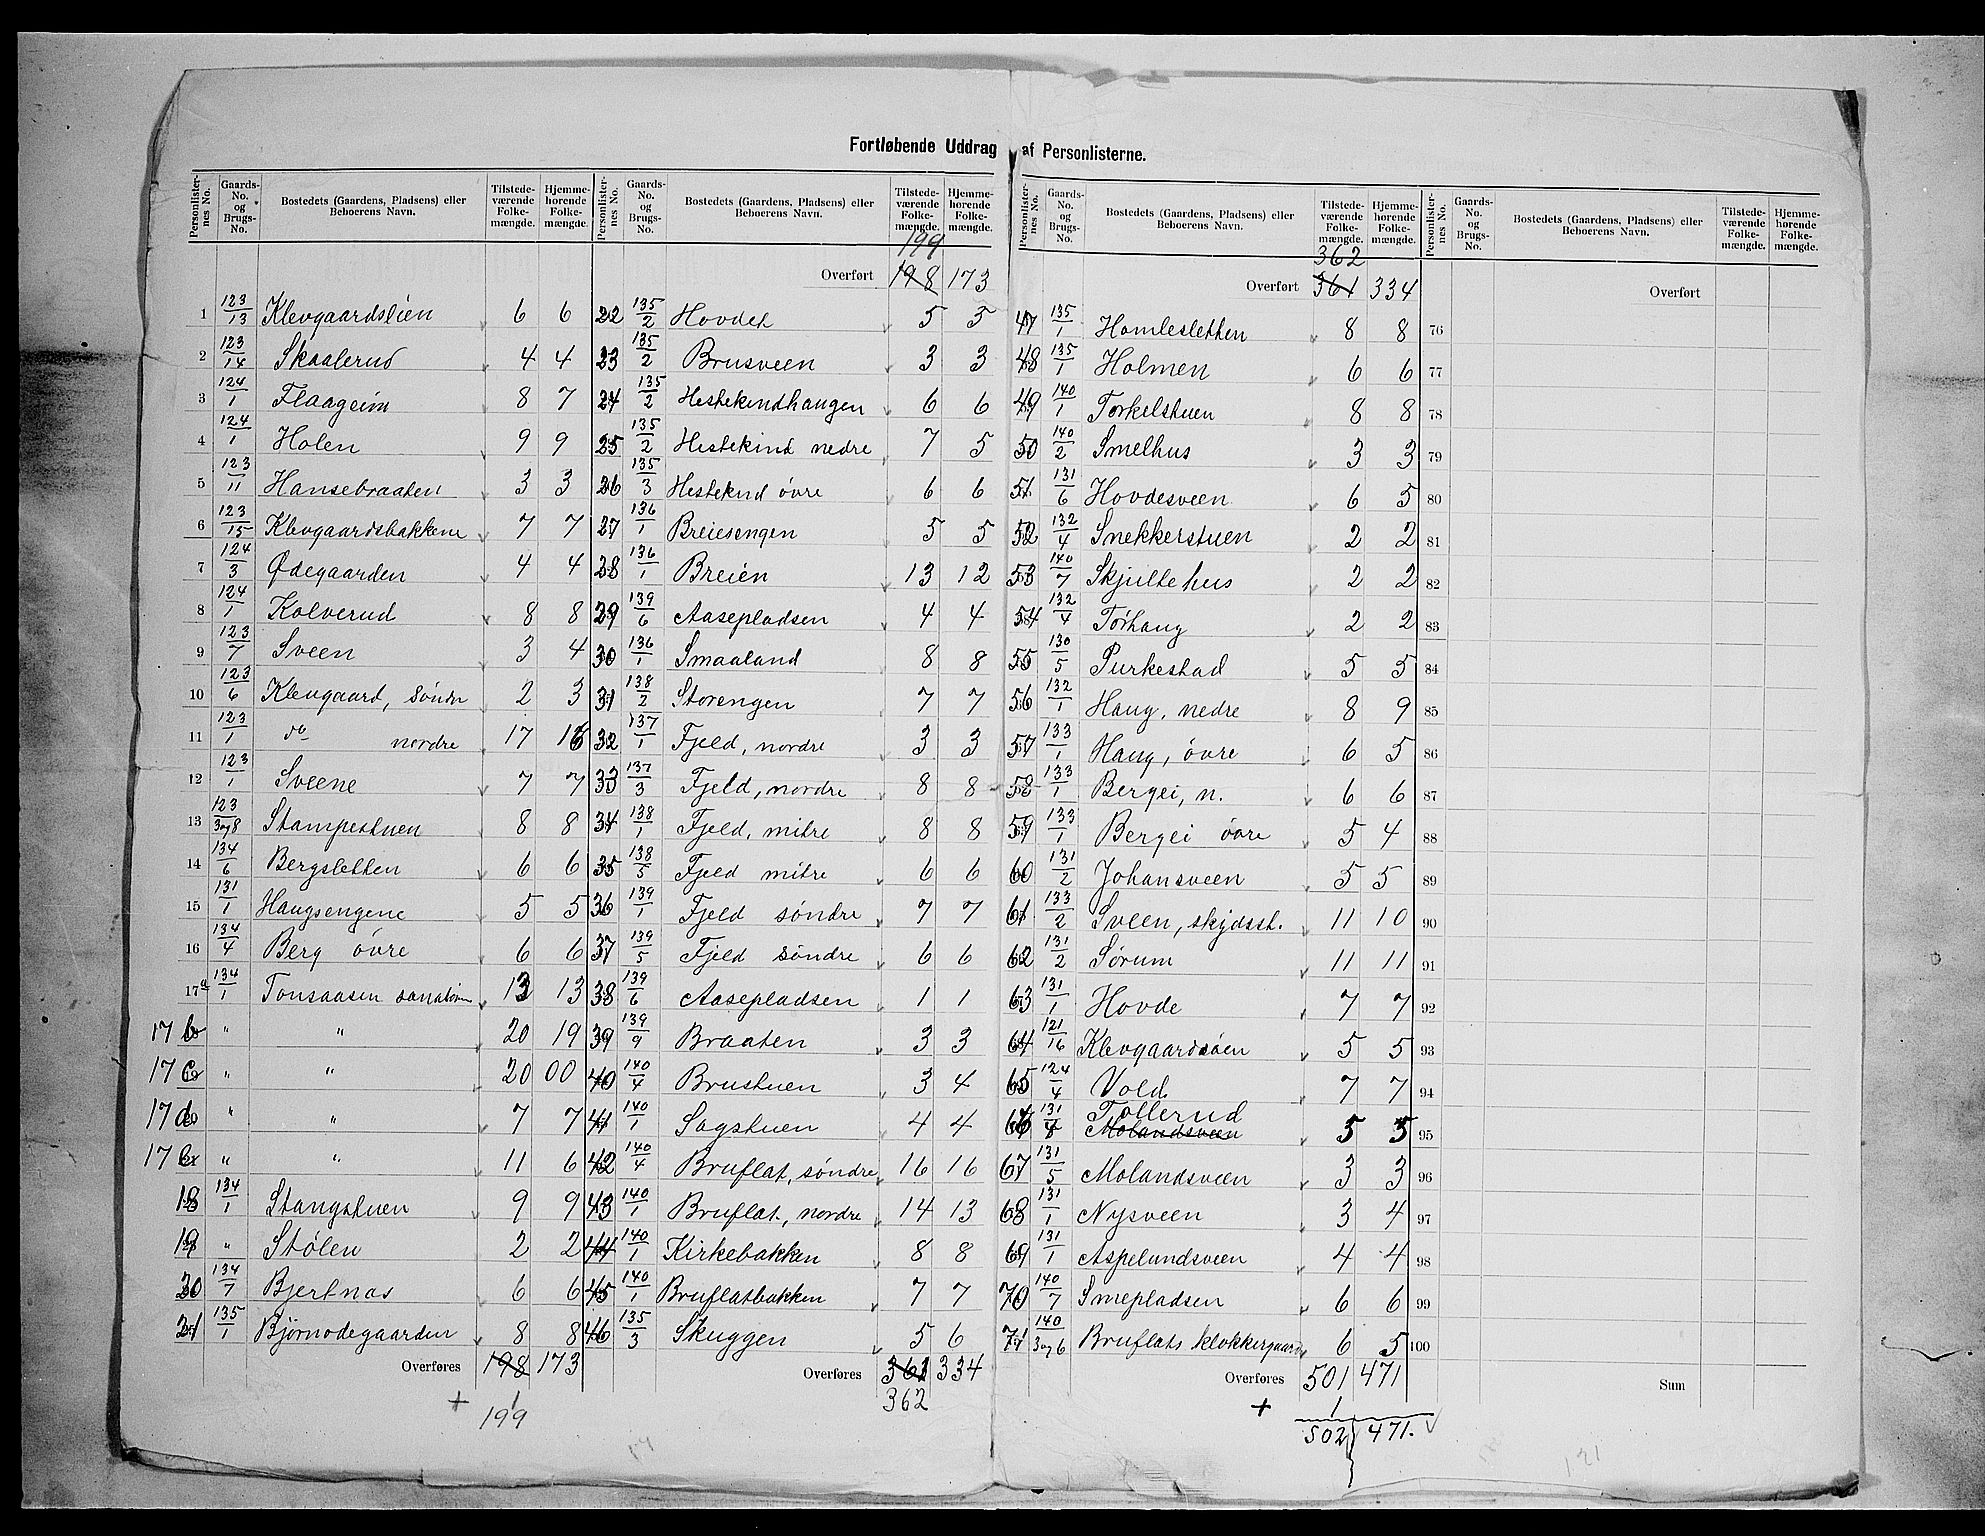 Fortløbende Uddrag af Personlisterne.
Personlisternes No. | Gaards-No. og Brugs-No. | Bostedets (Gaardens, Pladsens) eller Beboerens Navn. | Tilstedeværende Folkemængde. | Hjemmehørende Folkemængde.
1 123/13 Klevgaardslien 6 6
2 123/14 Skaalerud 4 4
3 124/1 Flaageim 8 7
4 124/1 Holen 9 9
5 123/11 Hansebraaten 3 3
6 123/15 Klevgaardsbakkene 7 7
7 124/3 Ødegaarden 4 4
8 124/1 Kolverud 8 8
9 123/7 Sveen 3 4
10 123/6 Klevgaard, söndre 2 3
11 123/1 do nordre 17 16
12 123/1 Sveene 7 7
13 123/3og8 Stampestuen 8 8
14 134/6 Bergsletten 6 6
15 131/1 Haugsengene 5 5
16 134/4 Berg övre 6 6
17a 134/1 Tonsaasen sanatorium 13 13
17 b " " 20 19
17 c " " 20 00
17 d " " 7 7
17 e " " 11 6
18 134/1 Stangstuen 9 9
19 " Stølen 2 2
20 134/7 Bjertnæs 6 6
21 135/1 Bjørnødegaarden 8 8
Overføres 198 173
+ 1
199
Personlisternes No. | Gaards-No. og Brugs-No. | Bostedets (Gaardens, Pladsens) eller Beboerens Navn. | Tilstedeværende Folkemængde. | Hjemmehørende Folkemængde.
199
Overført 198 173
22 135/2 Hovdet 5 5
23 135/2 Brusveen 3 3
24 135/2 Hestekindhaugen 6 6
25 135/2 Hestekind nedre 7 5
26 135/3 Hestekind övre 6 6
27 136/1 Breiesengen 5 5
28 136/1 Breien 13 12
29 139/6 Aasepladsen 4 4
30 136/1 Smaaland 8 8
31 138/2 Storengen 7 7
32 137/1 Fjeld, nordre 3 3
33 137/3 Fjeld, nordre 8 8
34 138/1 Fjeld, mitre 8 8
35 138/5 Fjeld mitre 6 6
36 139/1 Fjeld søndre 7 7
37 139/5 Fjeld søndre 6 6
38 139/6 Aasepladsen 1 1
39 139/9 Braaten 3 3
40 140/4 Brustuen 3 4
41 140/1 Sagstuen 4 4
42 140/4 Bruflat, søndre 16 16
43 140/1 Bruflat, nordre 14 13
44 140/1 Kirkebakken 8 8
45 140/1 Bruflatbakken 7 7
46 135/3 Skuggen 5 6
Overføres 361 334
362
Personlisternes No. | Gaards-No. og Brugs-No. | Bostedets (Gaardens, Pladsens) eller Beboerens Navn. | Tilstedeværende Folkemængde. | Hjemmehørende Folkemængde.
362
Overført 361 334
47 135/1 Homlesletten 8 8
48 135/1 Holmen 6 6
49 140/1 Torkelstuen 8 8
50 140/2 Smelhus 3 3
51 131/6 Hovdesveen 6 5
52 132/4 Snekkerstuen 2 2
53 140/7 Skjultehus 2 2
54 132/4 Torhaug 2 2
55 130/5 Purkestad 5 5
56 132/1 Haug, nedre 8 9
57 133/1 Haug, övre 6 5
58 133/1 Bergei, n. 6 6
59 133/1 Bergei övre 5 4
60 131/2 Johansveen 5 5
61 133/2 Sveen, skydsst. 11 10
62 131/2 Sørum 11 11
63 131/1 Hovde 7 7
64 121/16 Klevgaardsøen 5 5
65 124/4 Vold 7 7
66 131/4 Tollerud 5 5
Molandsveen
67 131/5 Molandsveen 3 3
68 131/1 Nysveen 3 4
69 131/1 Aspelundsveen 4 4
70 140/7 Smepladsen 6 6
71 140/3og6 Bruflats klokkergaard 6 5
Overføres 501 471
+ 1
502 471.
Personlisternes No. | Gaards-No. og Brugs-No. | Bostedets (Gaardens, Pladsens) eller Beboerens Navn. | Tilstedeværende Folkemængde. | Hjemmehørende Folkemængde.
Overført
76
77
78
79
80
81
82
83
84
85
86
87
88
89
90
91
92
93
94
95
96
97
98
99
100
Sum
121